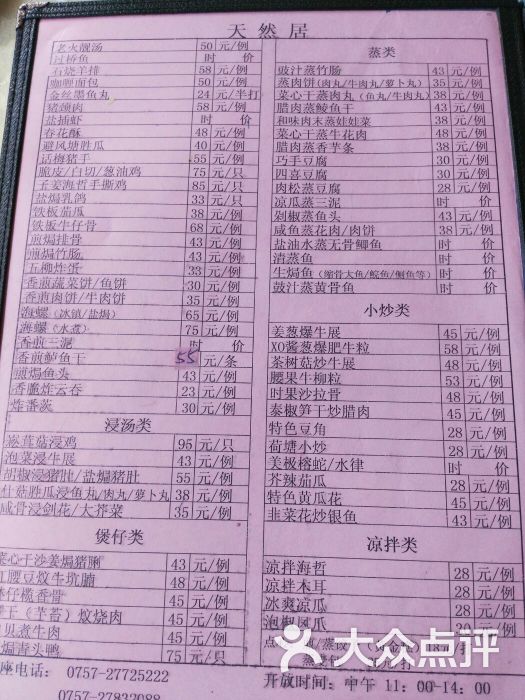 天然居
老火靓汤 50 元/例
过桥鱼 时 价
石烧羊排 58 元/例
咖喱面包 50 元/例
金丝墨鱼丸 24 元/半打
猪颈肉 58 元/例
盐插虾 时 价
春花酥 48 元/例
避风塘胜瓜 40 元/例
话梅猪手 55 元/例
脆皮/白切/葱油鸡 75 元/只
子姜海哲手撕鸡 85 元/只
盐焗乳鸽 33 元/只
铁板茄瓜 38 元/例
铁板牛仔骨 68 元/例
煎焗排骨 43 元/例
煎焗竹肠 43 元/例
五柳炸蛋 33 元/例
香煎蔬菜饼/鱼饼 30 元/例
香煎肉饼/牛肉饼 35 元/例
海螺(冰镇/盐焗) 65 元/例
海螺(水煮) 75 元/例
香煎三泥 时 价
香煎鲈鱼干 55 元/条
煎焗鱼头 43 元/例
香脆炸云吞 23 元/例
炸番茨 30 元/例
浸汤类
菘茸菇浸鸡 95 元/只
泡菜浸牛展 43 元/例
胡椒浸猪肚/盐焗猪肚 55 元/例
什菇胜瓜浸鱼丸/肉丸/萝卜丸 38 元/例
咸骨浸剑花/大芥菜 35 元/例
煲仔类
菜心干沙姜焗猪脷 43 元/例
红腰豆炆牛坑腩 48 元/例
仔榄香骨 45 元/例
干(芋苔)炆烧肉 45 元/例
贝煮牛肉 45 元/例
焗青头鸭 75 元/只
蒸类
豉汁蒸竹肠 43 元/例
蒸肉饼(肉丸/牛肉丸/萝卜丸) 35 元/例
菜心干蒸肉丸(鱼丸/牛肉丸) 38 元/例
腊肉蒸鲮鱼干 43 元/例
和味肉末蒸娃娃菜 38 元/例
菜心干蒸牛花肉 48 元/例
腊肉蒸香芋条 38 元/例
巧手豆腐 28 元/例
四喜豆腐 30 元/例
肉松蒸豆腐 28 元/例
凉瓜蒸三泥 时 价
剁椒蒸鱼头 43 元/例
咸鱼蒸花肉/肉饼 38 元/例
盐油水蒸无骨鲫鱼 时 价
清蒸鱼 时 价
生焗鱼(缩骨大鱼/鲩鱼/鲗鱼等) 时 价
鼓汁蒸黄骨鱼 时 价
小炒类
姜葱爆牛展 45 元/例
XO酱葱爆肥牛粒 58 元/例
茶树菇炒牛展 48 元/例
腰果牛柳粒 53 元/例
时果沙拉骨 48 元/例
秦椒笋干炒腊肉 45 元/例
特色豆角 28 元/例
荷塘小炒 28 元/例
美极榕蛇/水律 时 价
芥辣茄瓜 28 元/例
特色黄瓜花 45 元/例
韭菜花炒银鱼 43 元/例
凉拌类
凉拌海哲 28 元/例
凉拌木耳 28 元/例
冰爽凉瓜 28 元/例
泡椒凤爪 30 元/例
大众点评
座电话: 0757-27725222
开放时间:中午 11:00-14:00